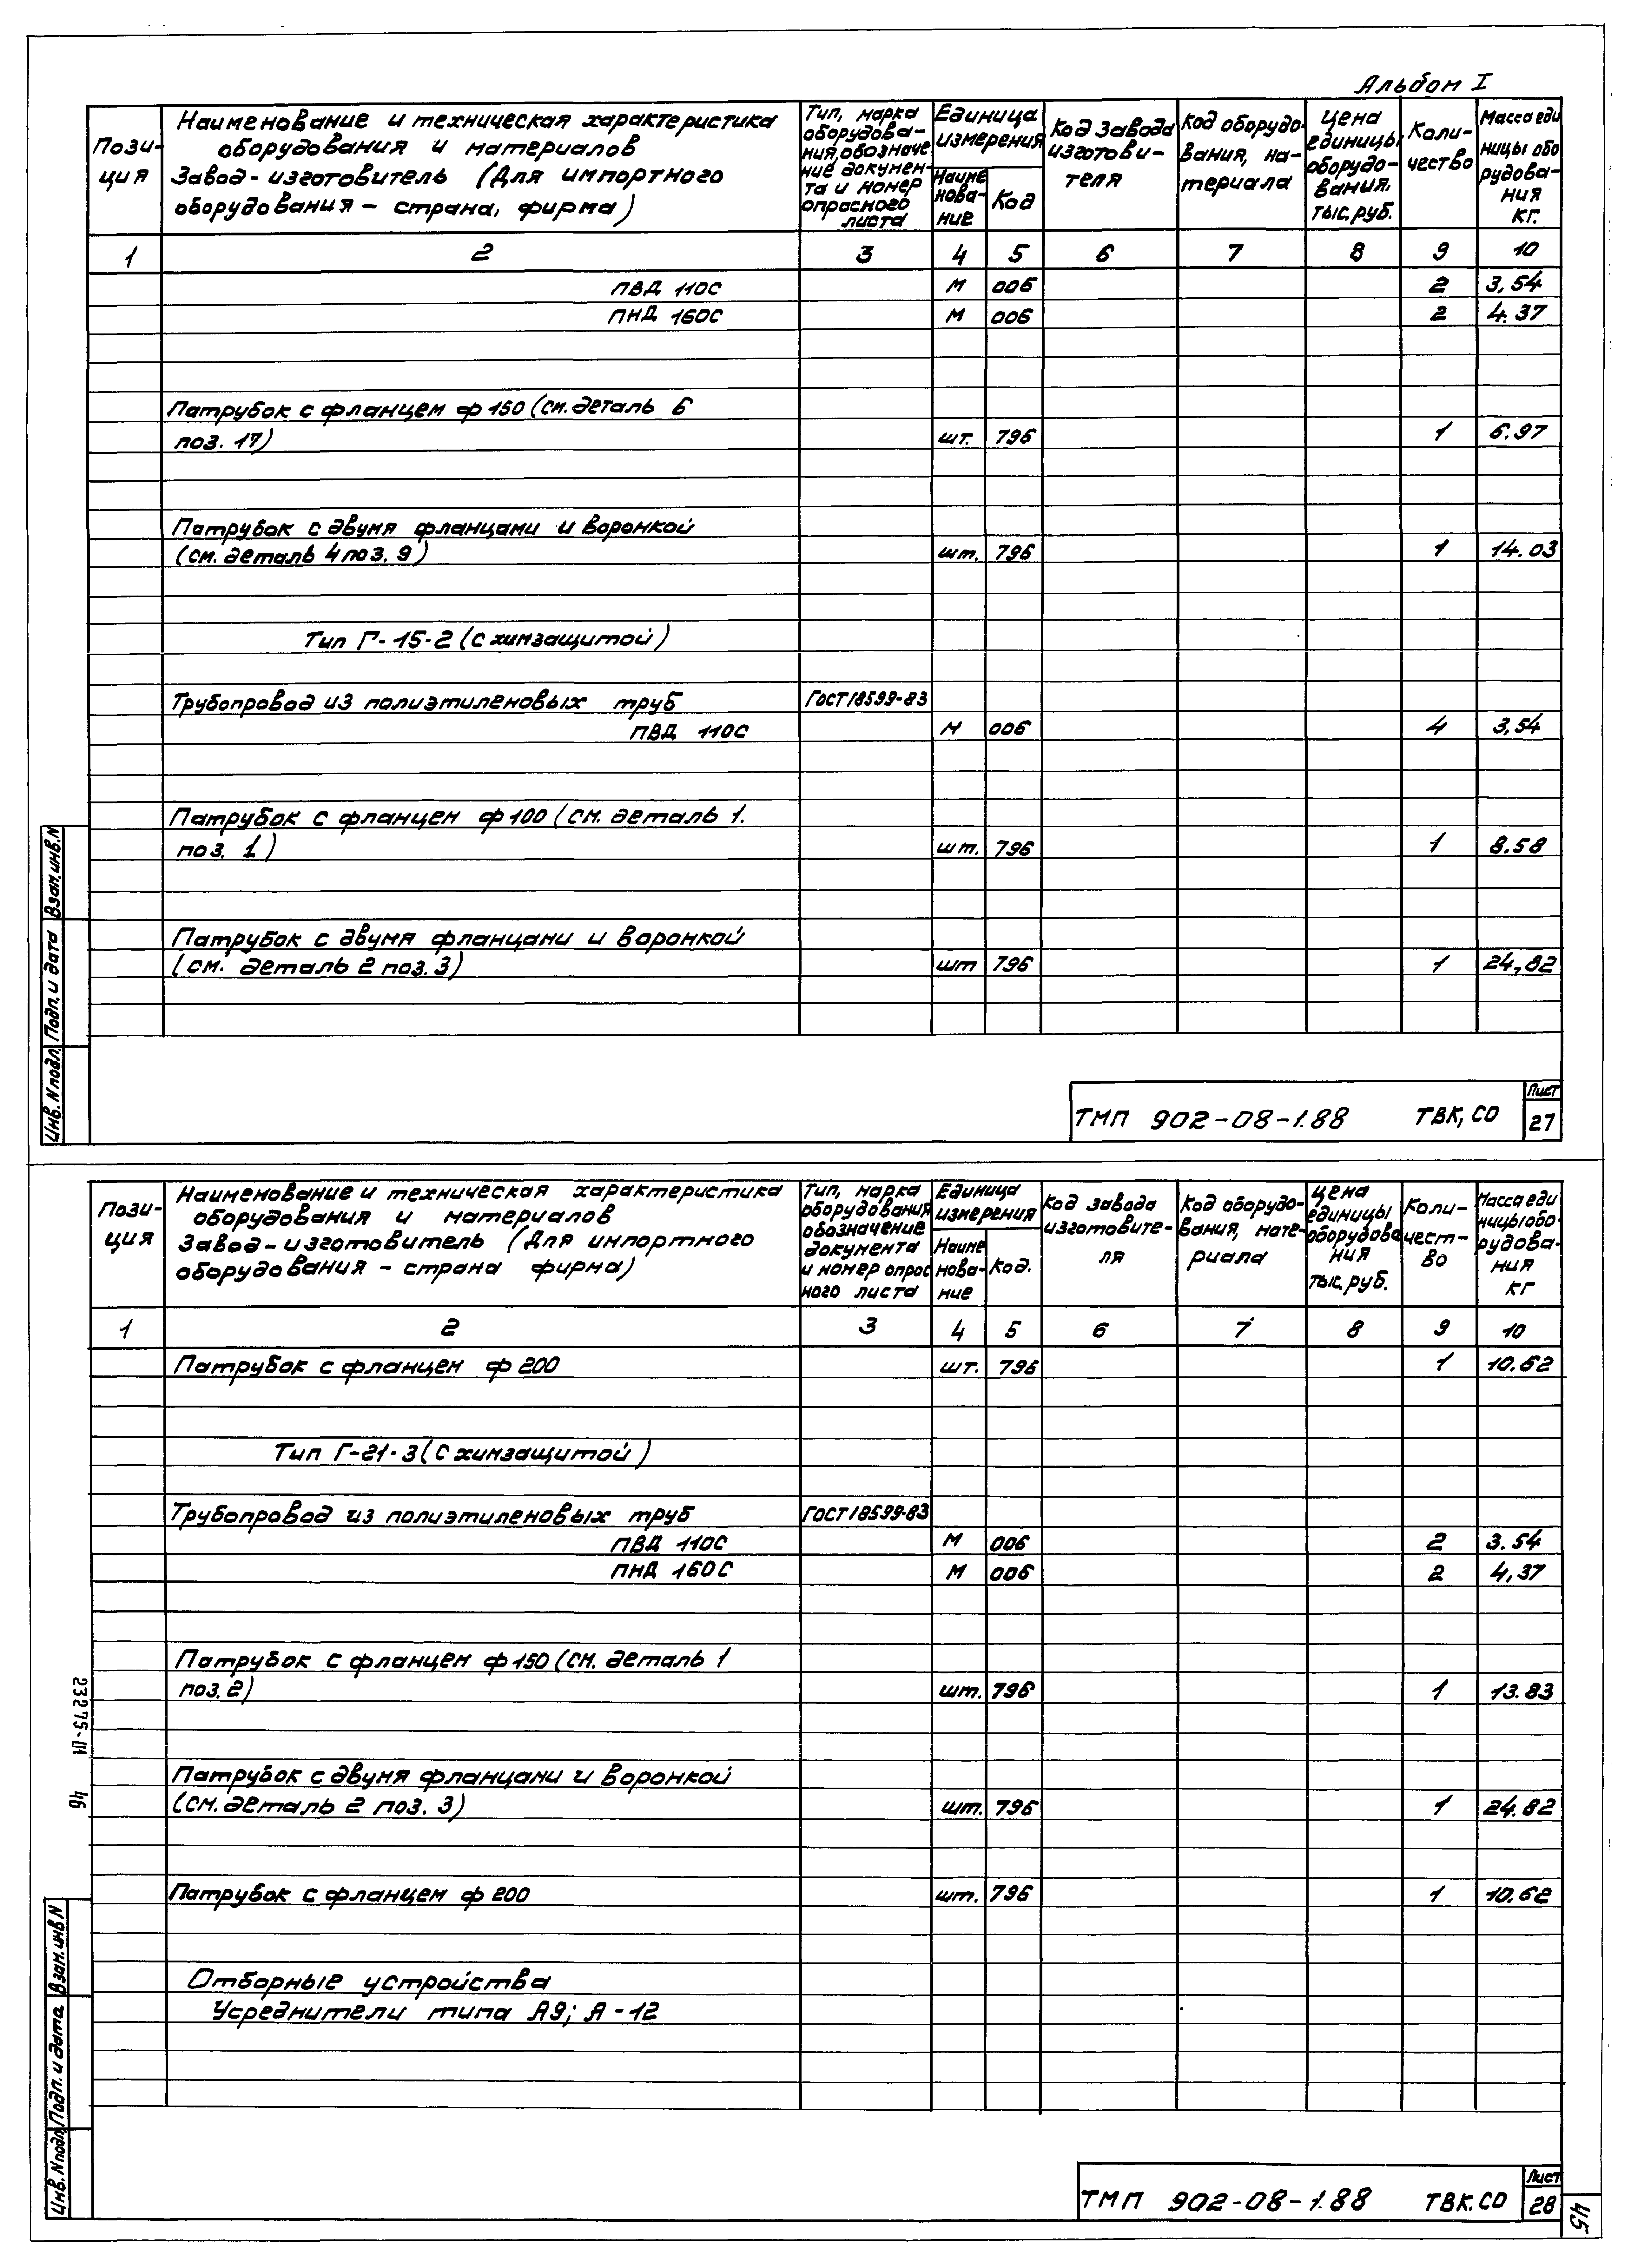 Альбом I
Пози-
ция
Наименование и техническая характеристика
оборудования и материалов
Завод-изготовитель (Для импортного
оборудования – страна, фирма)
Тип, марка
оборудова-
ния, обозначе
ние докумен-
та и номер
опросного
листа
Единица
измерения
Наиме
нова-
ние
Код
Код завода
изготови-
теля
Код оборудо-
вания, ма-
териала
Цена
единицы
оборудо-
вания,
тыс. руб.
Коли-
чество
Масса еди
ницы обо
рудова-
ния
кг.
1 2 3 4 5 6 7 8 9 10
ПВД 110С М 006 2 3,54
ПНД 160С М 006 2 4.37
Патрубок с фланцем ф 150 (см. деталь 6
поз. 17) шт. 796 1 6.97
Патрубок с двумя фланцами и воронкой
(см. деталь 4 поз. 9) шт. 796 1 14.03
Тип Г-15-2 (с химзащитой)
Трубопровод из полиэтиленовых труб ГОСТ 18599-83
ПВД 110С М 006 4 3,54
Патрубок с фланцем ф 100 (см. деталь 1.
поз. 1) шт. 796 1 8.58
Патрубок с двумя фланцами и воронкой
(см. деталь 2 поз. 3) шт 796 1 24,82
Инв. N подл. Подп. и дата Взам. инв. N
ТМП 902-08-1.88 ТВК, СО
Лист
27
Пози-
ция
Наименование и техническая характеристика
оборудования и материалов
Завод-изготовитель (Для импортного
оборудования - страна фирма)
Тип, марка
оборудования
обозначение
документа
и номер опрос
ного листа
Единица
измерения
Наиме
нова-
ние
Код.
Код завода
изготовите-
ля
Код оборудо-
вания, мате-
риала
Цена
единицы
оборудова
ния
тыс. руб.
Коли-
чест-
во
Масса еди
ницы обо-
рудова-
ния
кг
1 2 3 4 5 6 7 8 9 10
Патрубок с фланцем ф 200 шт. 796 1 10.62
Тип Г-21-3 (с химзащитой)
Трубопровод из полиэтиленовых труб ГОСТ 18599-83
ПВД 110С М 006 2 3.54
ПНД 160С М 006 2 4,37
Патрубок с фланцем ф 150 (см. деталь 1
поз. 2) шт. 796 1 13.83
Патрубок с двумя фланцами и воронкой
(см. деталь 2 поз. 3) шт. 796 1 24.82
Патрубок с фланцем ф 200 шт. 796 1 10.62
Отборные устройства
Усреднители типа А9; А-12
23275-01 46
Инв. N подл. Подп. и дата Взам. инв N
ТМП 902-08-1.88 ТВК.СО
Лист
28
45